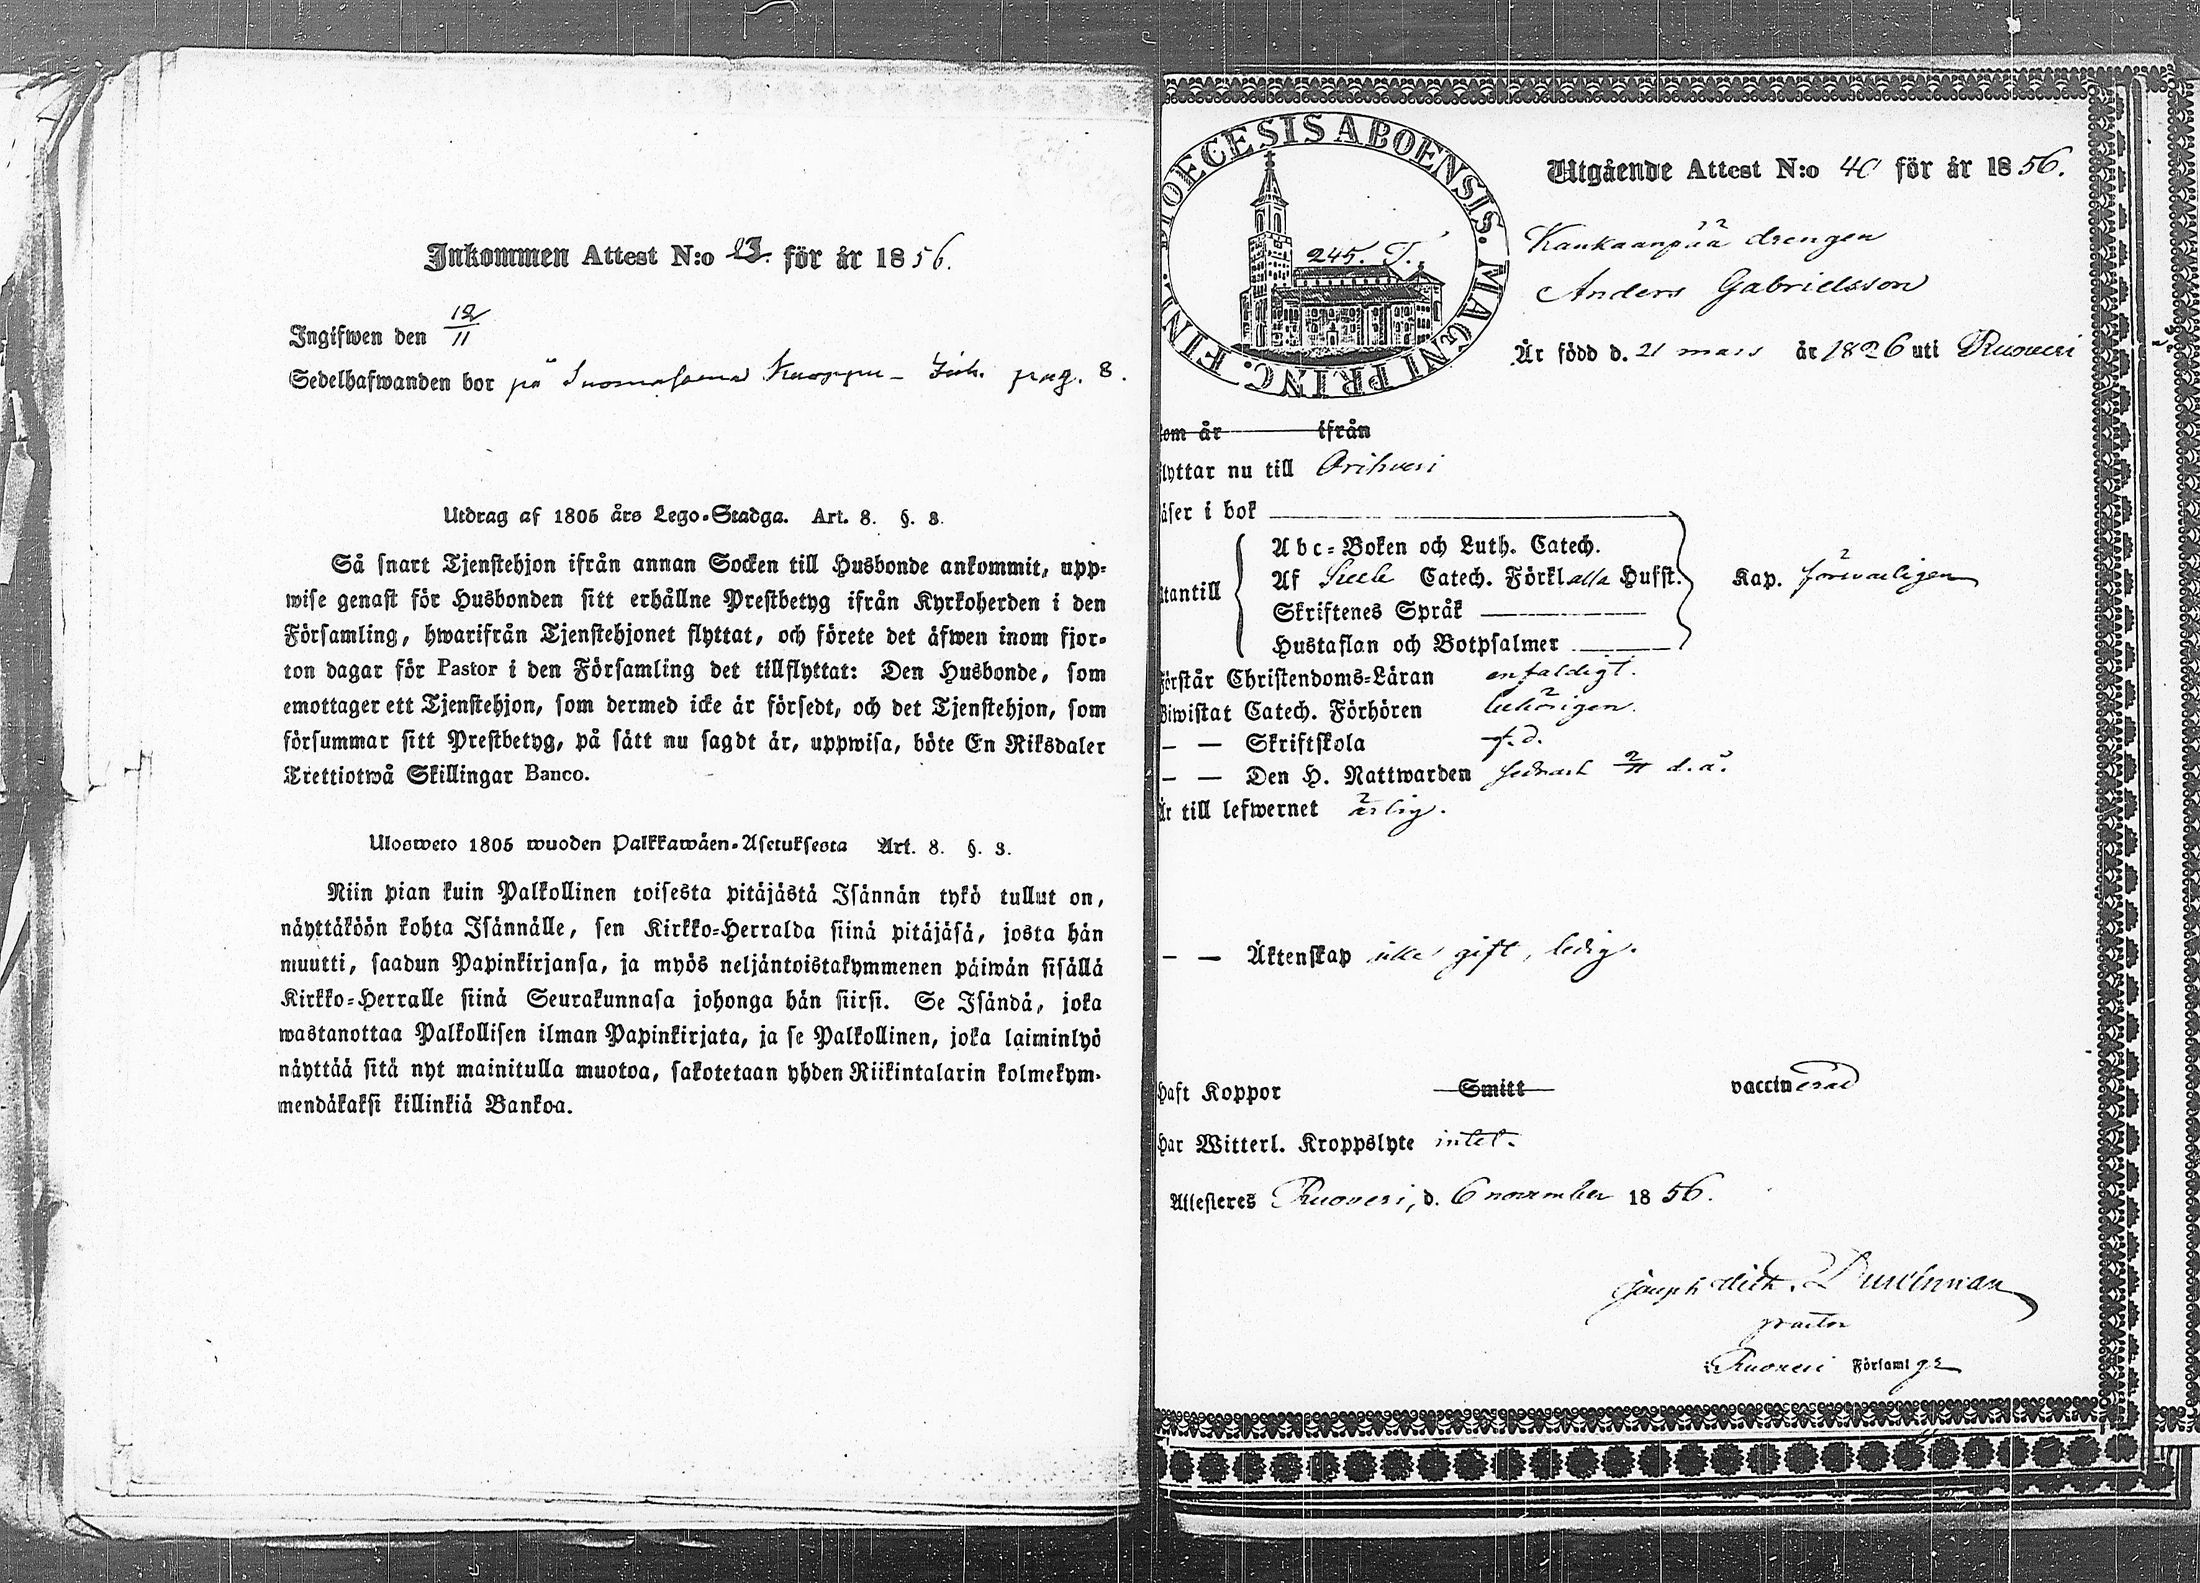 Inkommen Attest N:o 23. för år 1856.
Ingifwen den 12/11
Sedelhafwanden bor på Kuoppu- pag. 8.
Utdrag af 1805 års Lego-Stadga. Art. 8. §. 3.
Så snart Tjenstehjon ifrån annan Socken till Husbonde ankommit, upp-
wise genast för Husbonden sitt erhållne Prestbetyg ifrån Kyrkoherden i den
Församling, hwarifrån Tjenstehjonet flyttat, och förete det äfwen inom fjor-
ton dagar för Pastor i den Församling det tillflyttat: Den Husbonde, som
emottager ett Tjenstehjon, som dermed icke är försedt, och det Tjenstehjon, som
försummar sitt Prestbetyg, på sätt nu sagdt är, uppwisa, böte En Riksdaler
Trettiotwå Skillingar Banco.
Ulosweto 1805 wuoden Palkkawäen-Asetuksesta Art. 8. §. 3.
Niin pian kuin Palkollinen toisesta pitäjästä Isännän tykö tullut on,
näyttäköön kohta Isännälle, sen Kirkko-Herralda siinä pitäjäsä, josta hän
muutti, saadun Papinkirjansa, ja myös neljäntoistakymmenen päiwän sisällä
Kirkko-Herralle siinä Seurakunnasa johonga hän siirsi. Se Isändä, joka
wastanottaa Palkollisen ilman Papinkirjata, ja se Palkollinen, joka laiminlyö
näyttää sitä nyt mainitulla muotoa, sakotetaan yhden Riikintalarin kolmekym-
mendäkaksi killinkiä Bankoa.
DIOECESIS ABOENSIS. MAGNI PRINC. FINL.
245. T.
Utgående Attest N:o 40 för år 1856.
Kaukaanpää drengen
Anders Gabrielsson
Är född d. 21 mars år 1826 uti Ruovesi
som är ifrån
flyttar nu till Orihvesi
läser i bok
utantill
Abc-Boken och Luth. Catech.
Af Catech. Förkl alla Husst. Kap. försvarligen
Skriftenes Språk
Hustaflan och Botpsalmer
Förstår Christendoms-Läran enfaldigt.
Biwistat Catech. Förhören behörigen.
— — Skriftskola f.d.
— — Den H. Nattwarden sednast 2/11 d.å.
Är till lefwernet ärlig.
— — Äktenskap icke gift, ledig.
haft Koppor Smitt vaccinerad
har Witterl. Kroppslyte intet.
Attesteras Ruovesi, d. 6 november 1856.
Joseph Wilh. Durchman
pastor
i Ruovesi Församlgs